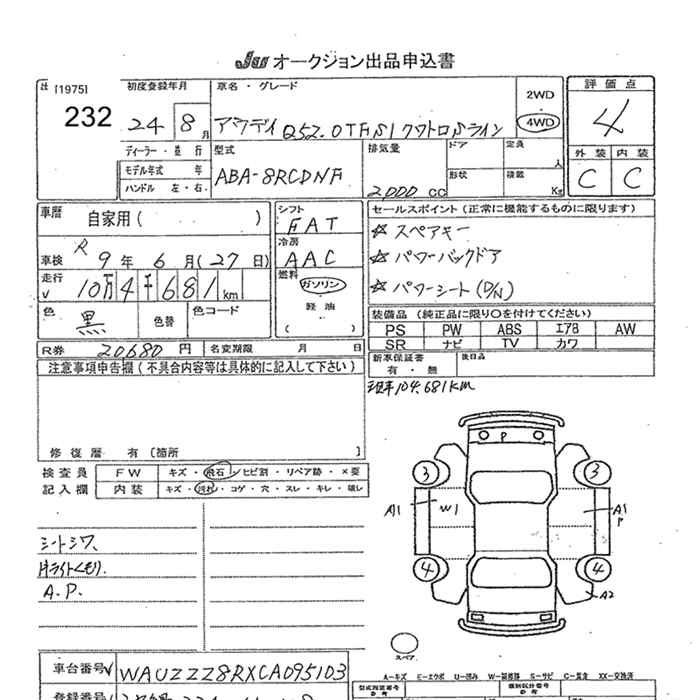 JU オークション出品申込書
[1975]
232
初度登録年月
24 8 月
車名・グレード
アウディ Q5 2.0TFSI クワトロ Sライン
2WD
4WD
評価点
4
外装 内装
C C
ディーラー・並行
モデル年式 年
ハンドル 左・右
型式
ABA-8RCDNF
排気量
2000 CC
ドア
定員
人
形状
積載
Kg
車歴
自家用( )
車検
R 9 年 6 月(27日)
走行
10万4千681km
色
黒
色替
色コード
シフト
FAT
冷房
AAC
燃料
ガソリン
軽油
( )
セールスポイント(正常に機能するものに限ります)
☆ スペアキー
☆ パワーバックドア
☆ パワーシート(D/N)
装備品(純正品に限り○を付けてください)
PS PW ABS エアB AW
SR ナビ TV カワ
R券 20680 円 名変期限 月 日
新車保証書
有・無
後日品
注意事項申告欄(不具合内容等は具体的に記入して下さい)
現車104,681km
修復歴 有〔箇所 〕
検査員
記入欄
FW キズ・飛石・ヒビ割・リペア跡・×要
内装 キズ・汚れ・コゲ・穴・スレ・キレ・壊レ
シートシワ、
片ライトくもり.
A.P.
P
3 3
A1 W1 A1
P
4 4
A2
スペア
車台番号 WAUZZZ8RXCA095103
A-キズ E-エクボ U-凹み W-補修跡 S-サビ C-腐食 XX-交換済
型式指定番号
類別区分番号
登録番号